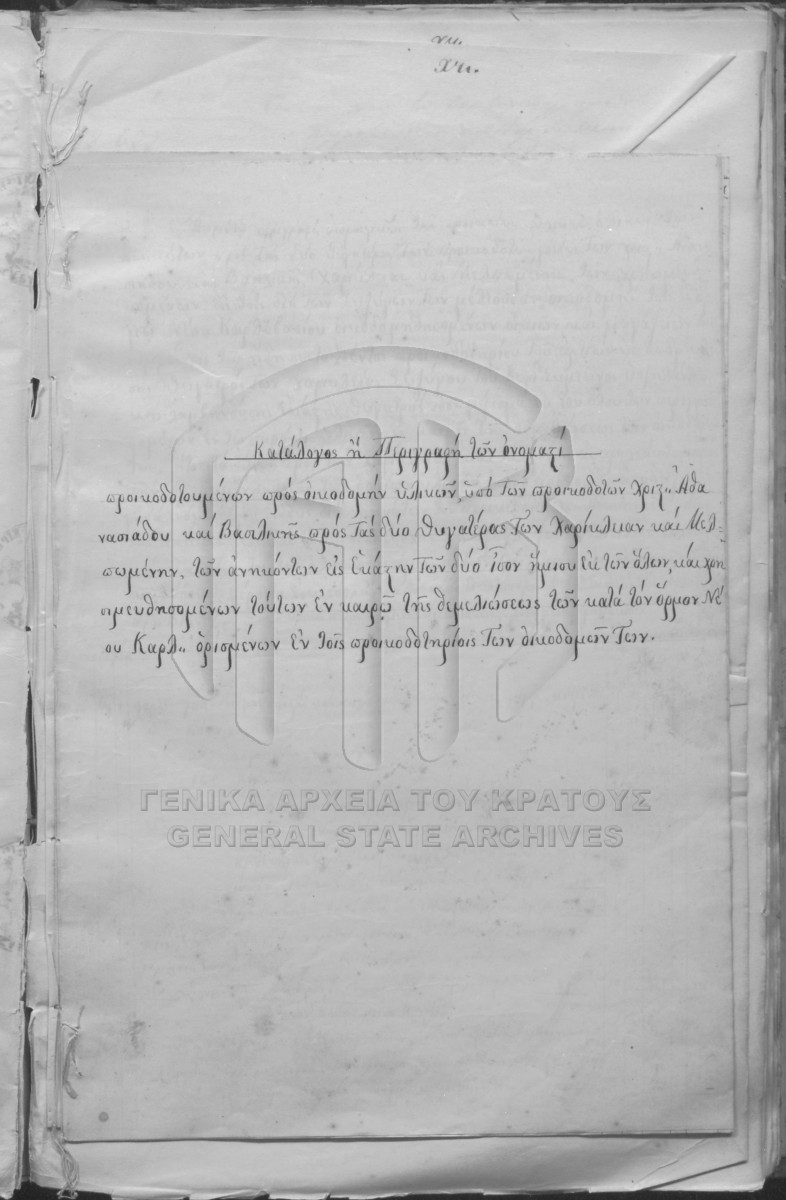 Κατάλογος ἤ Περιγραφή τῶν ὀνομαστί
προικοδοτουμένων πρός οἰκοδομήν ὑλικῶν, ὑπό τῶν προικοδοτῶν Χριστ.. Ἀθα
νασιάδου καί Βασιλικῆς πρός τάς δύο θυγατέρας των Χαρίκλειαν καί Μελ-
πωμένην, τῶν ἀνηκόντων εἰς ἑκάστην τῶν δύο ἴσον ἥμισυ ἐκ τῶν ὅλων, καί χρη
σιμευθησομένων τούτων ἐν καιρῷ τῆς θεμελιώσεως τῶν κατά τόν ὅρμον Νέ
ου Καρλ.. ὁρισμένων ἐν τοῖς προικοδοτηρίοις των οἰκοδομῶν των.
ΓΕΝΙΚΑ ΑΡΧΕΙΑ ΤΟΥ ΚΡΑΤΟΥΣ
GENERAL STATE ARCHIVES